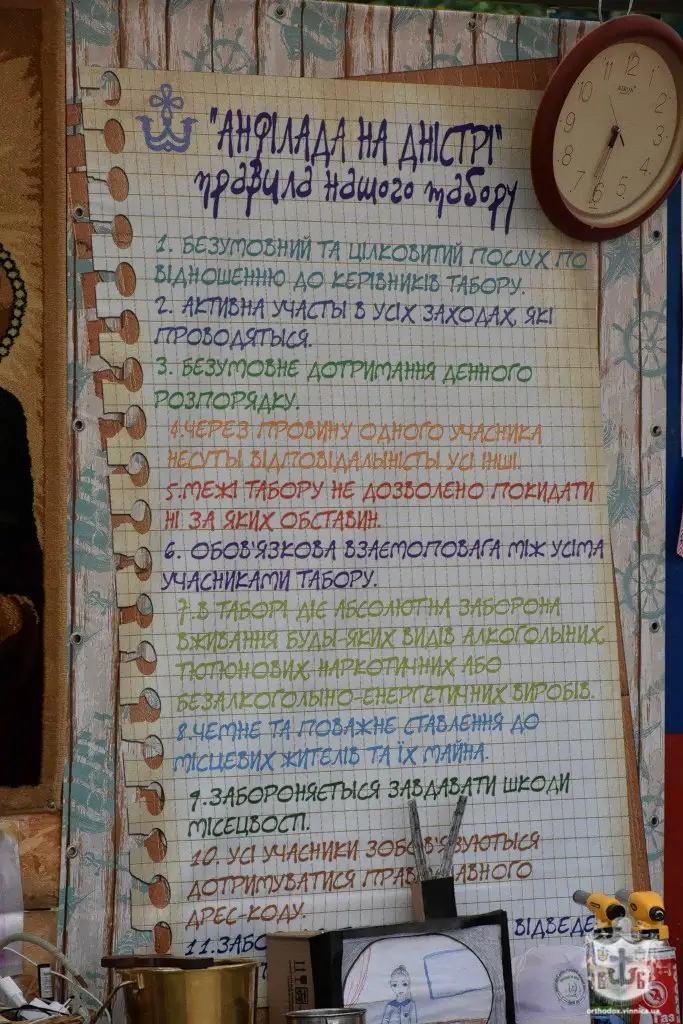 "АНФІЛАДА НА ДНІСТРІ"
правила нашого табору
1. БЕЗУМОВНИЙ ТА ЦІЛКОВИТИЙ ПОСЛУХ ПО
ВІДНОШЕННЮ ДО КЕРІВНИКІВ ТАБОРУ.
2. АКТИВНА УЧАСТЬ В УСІХ ЗАХОДАХ, ЯКІ
ПРОВОДЯТЬСЯ.
3. БЕЗУМОВНЕ ДОТРИМАННЯ ДЕННОГО
РОЗПОРЯДКУ.
4.ЧЕРЕЗ ПРОВИНУ ОДНОГО УЧАСНИКА
НЕСУТЬ ВІДПОВІДАЛЬНІСТЬ УСІ ІНШІ.
5.МЕЖІ ТАБОРУ НЕ ДОЗВОЛЕНО ПОКИДАТИ
НІ ЗА ЯКИХ ОБСТАВИН.
6. ОБОВ'ЯЗКОВА ВЗАЄМОПОВАГА МІЖ УСІМА
УЧАСНИКАМИ ТАБОРУ.
7.В ТАБОРІ ДІЄ АБСОЛЮТНА ЗАБОРОНА
ВЖИВАННЯ БУДЬ-ЯКИХ ВИДІВ АЛКОГОЛЬНИХ,
ТЮТЮНОВИХ, НАРКОТИЧНИХ АБО
БЕЗАЛКОГОЛЬНО-ЕНЕРГЕТИЧНИХ ВИРОБІВ.
8.ЧЕМНЕ ТА ПОВАЖНЕ СТАВЛЕННЯ ДО
МІСЦЕВИХ ЖИТЕЛІВ ТА ЇХ МАЙНА.
9.ЗАБОРОНЯЄТЬСЯ ЗАВДАВАТИ ШКОДИ
МІСЕЦВОСТІ.
10. УСІ УЧАСНИКИ ЗОБОВ'ЯЗУЮТЬСЯ
ДОТРИМУВАТИСЯ ПРАВ АВНОГО
ДРЕС-КОДУ.
11.ЗАБО ВІДВЕДЕ
12 1 2 3 4 5 6 7 8 9 10 11
orthodox.vinnica.ua